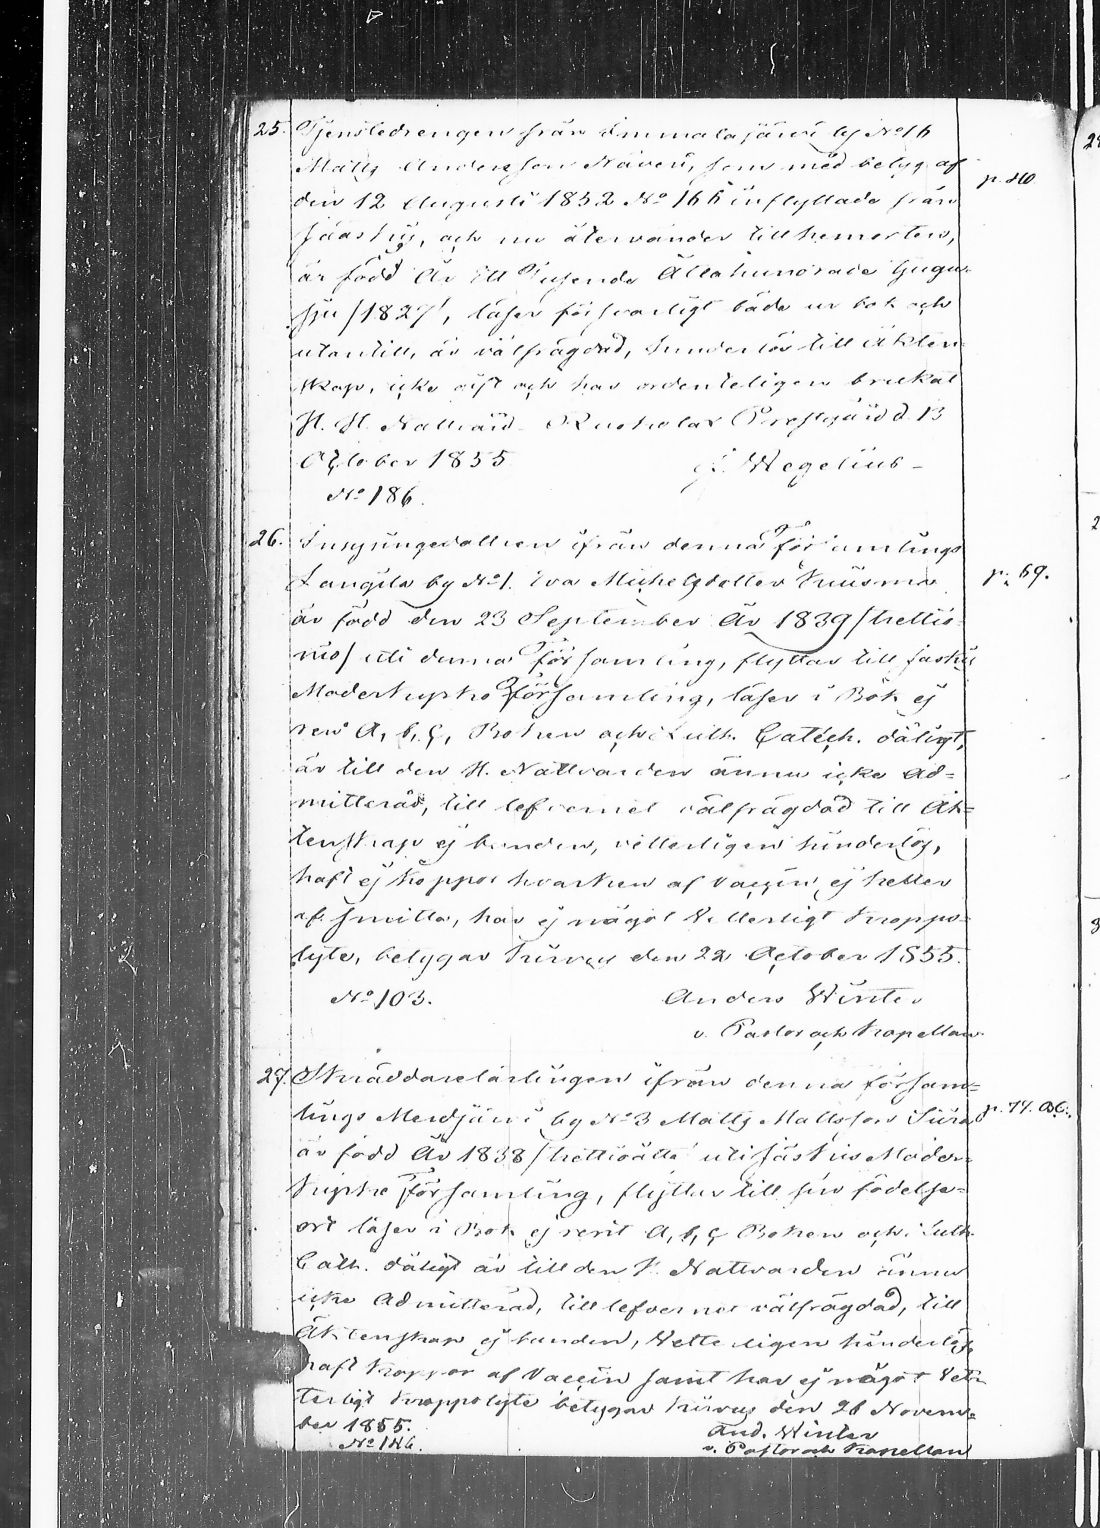 25. Tjenstedrengen från Immalajärvi by No 16
Matts Andersson Näveri, som med betyg af
den 12 Augusti 1852 No 166 inflyttade från
Jääskis, och nu återvänder till hemorten,
är född År Ett Tusende Åttahundrade tjugu-
sju /1827/, läser försvarligt både ur bok och
utantill, är välfrägdad, hinderlös till äkten-
skap, icke gift och har ordenteligen brukat
H. H. Nattvard. Ruokolax Prestgård d. 13
October 1855. Wegelius
No 186.
p. 40.
26. Inhysingedottren ifrån denna Församlings
Kangila by No 1. Eva Michelsdotter Kuisma
är född den 23 September År 1839 /trettio-
nio/ uti denna församling, flyttar till Jäskis
Moderkyrko församling, läser i Bok ej
rent A, b, c, Boken och i Luth. Catech. dåligt,
är till den H. Nattvarden ännu icke Ad-
mitterad, till lefvernet välfrägdad till Äk-
tenskap ej bunden, vetterligen hinderlös,
haft ej koppor hvarken af Vaccin ej heller
af Smitta, har ej något Vetterligt kropps-
lyte, betygar Kirvus den 22 October 1855.
No 103. Anders Winter
v. Pastor och Kapellan
p. 69.
27. Skräddarelärlingen ifrån denna församl-
lings Merdjärvi by No 3 Matts Mattsson
är född År 1838 /trettioåtta/ uti Jäskis Moder-
kyrko församling, flyttar till sin födelse-
ort läser i Bok ej rent A, b, c Boken och i Luth.
Cath. dåligt är till den H. Nattvarden ännu
icke Admitterad, till lefvernet välfrägdad, till
Äktenskap ej bunden, Vetterligen hinderlös,
haft koppor af Vaccin samt har ej något Vet-
terligt kroppslyte betygar Kirvus den 26 Novem-
ber 1855. And. Winter
No 146. v. Pastor och Kapellan
p. 77.